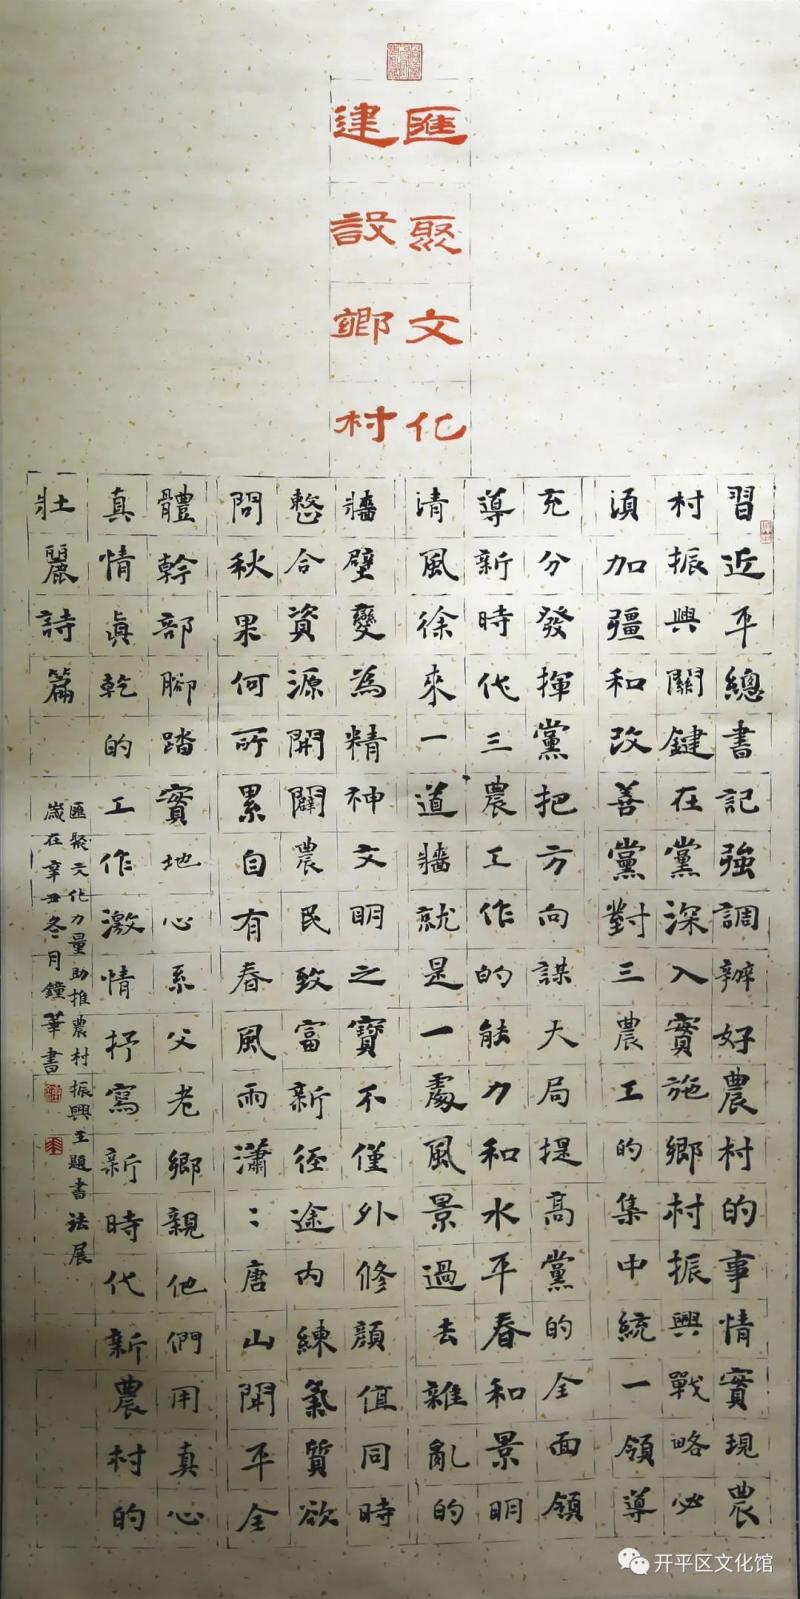 匯聚文化
建設鄉村
習近平總書記強調辦好農村的事情實現農
村振興關鍵在黨深入實施鄉村振興戰略必
須加彊和改善黨對三農工的集中統一領導
充分發揮黨把方向謀大局提高黨的全面領
導新時代三農工作的能力和水平春和景明
清風徐來一道牆就是一處風景過去雜亂的
牆壁變為精神文明之寶不僅外修顏值同時
整合資源開闢農民致富新徑途內練氣質欲
問秋果何所累自有春風雨瀟：唐山開平全
體幹部腳踏實地心系父老鄉親他們用真心
真情眞乾的工作激情抒寫新時代新農村的
壯麗詩篇
匯聚文化力量助推農村振興主題書法展
歲在辛丑冬月鐘華書
开平区文化馆